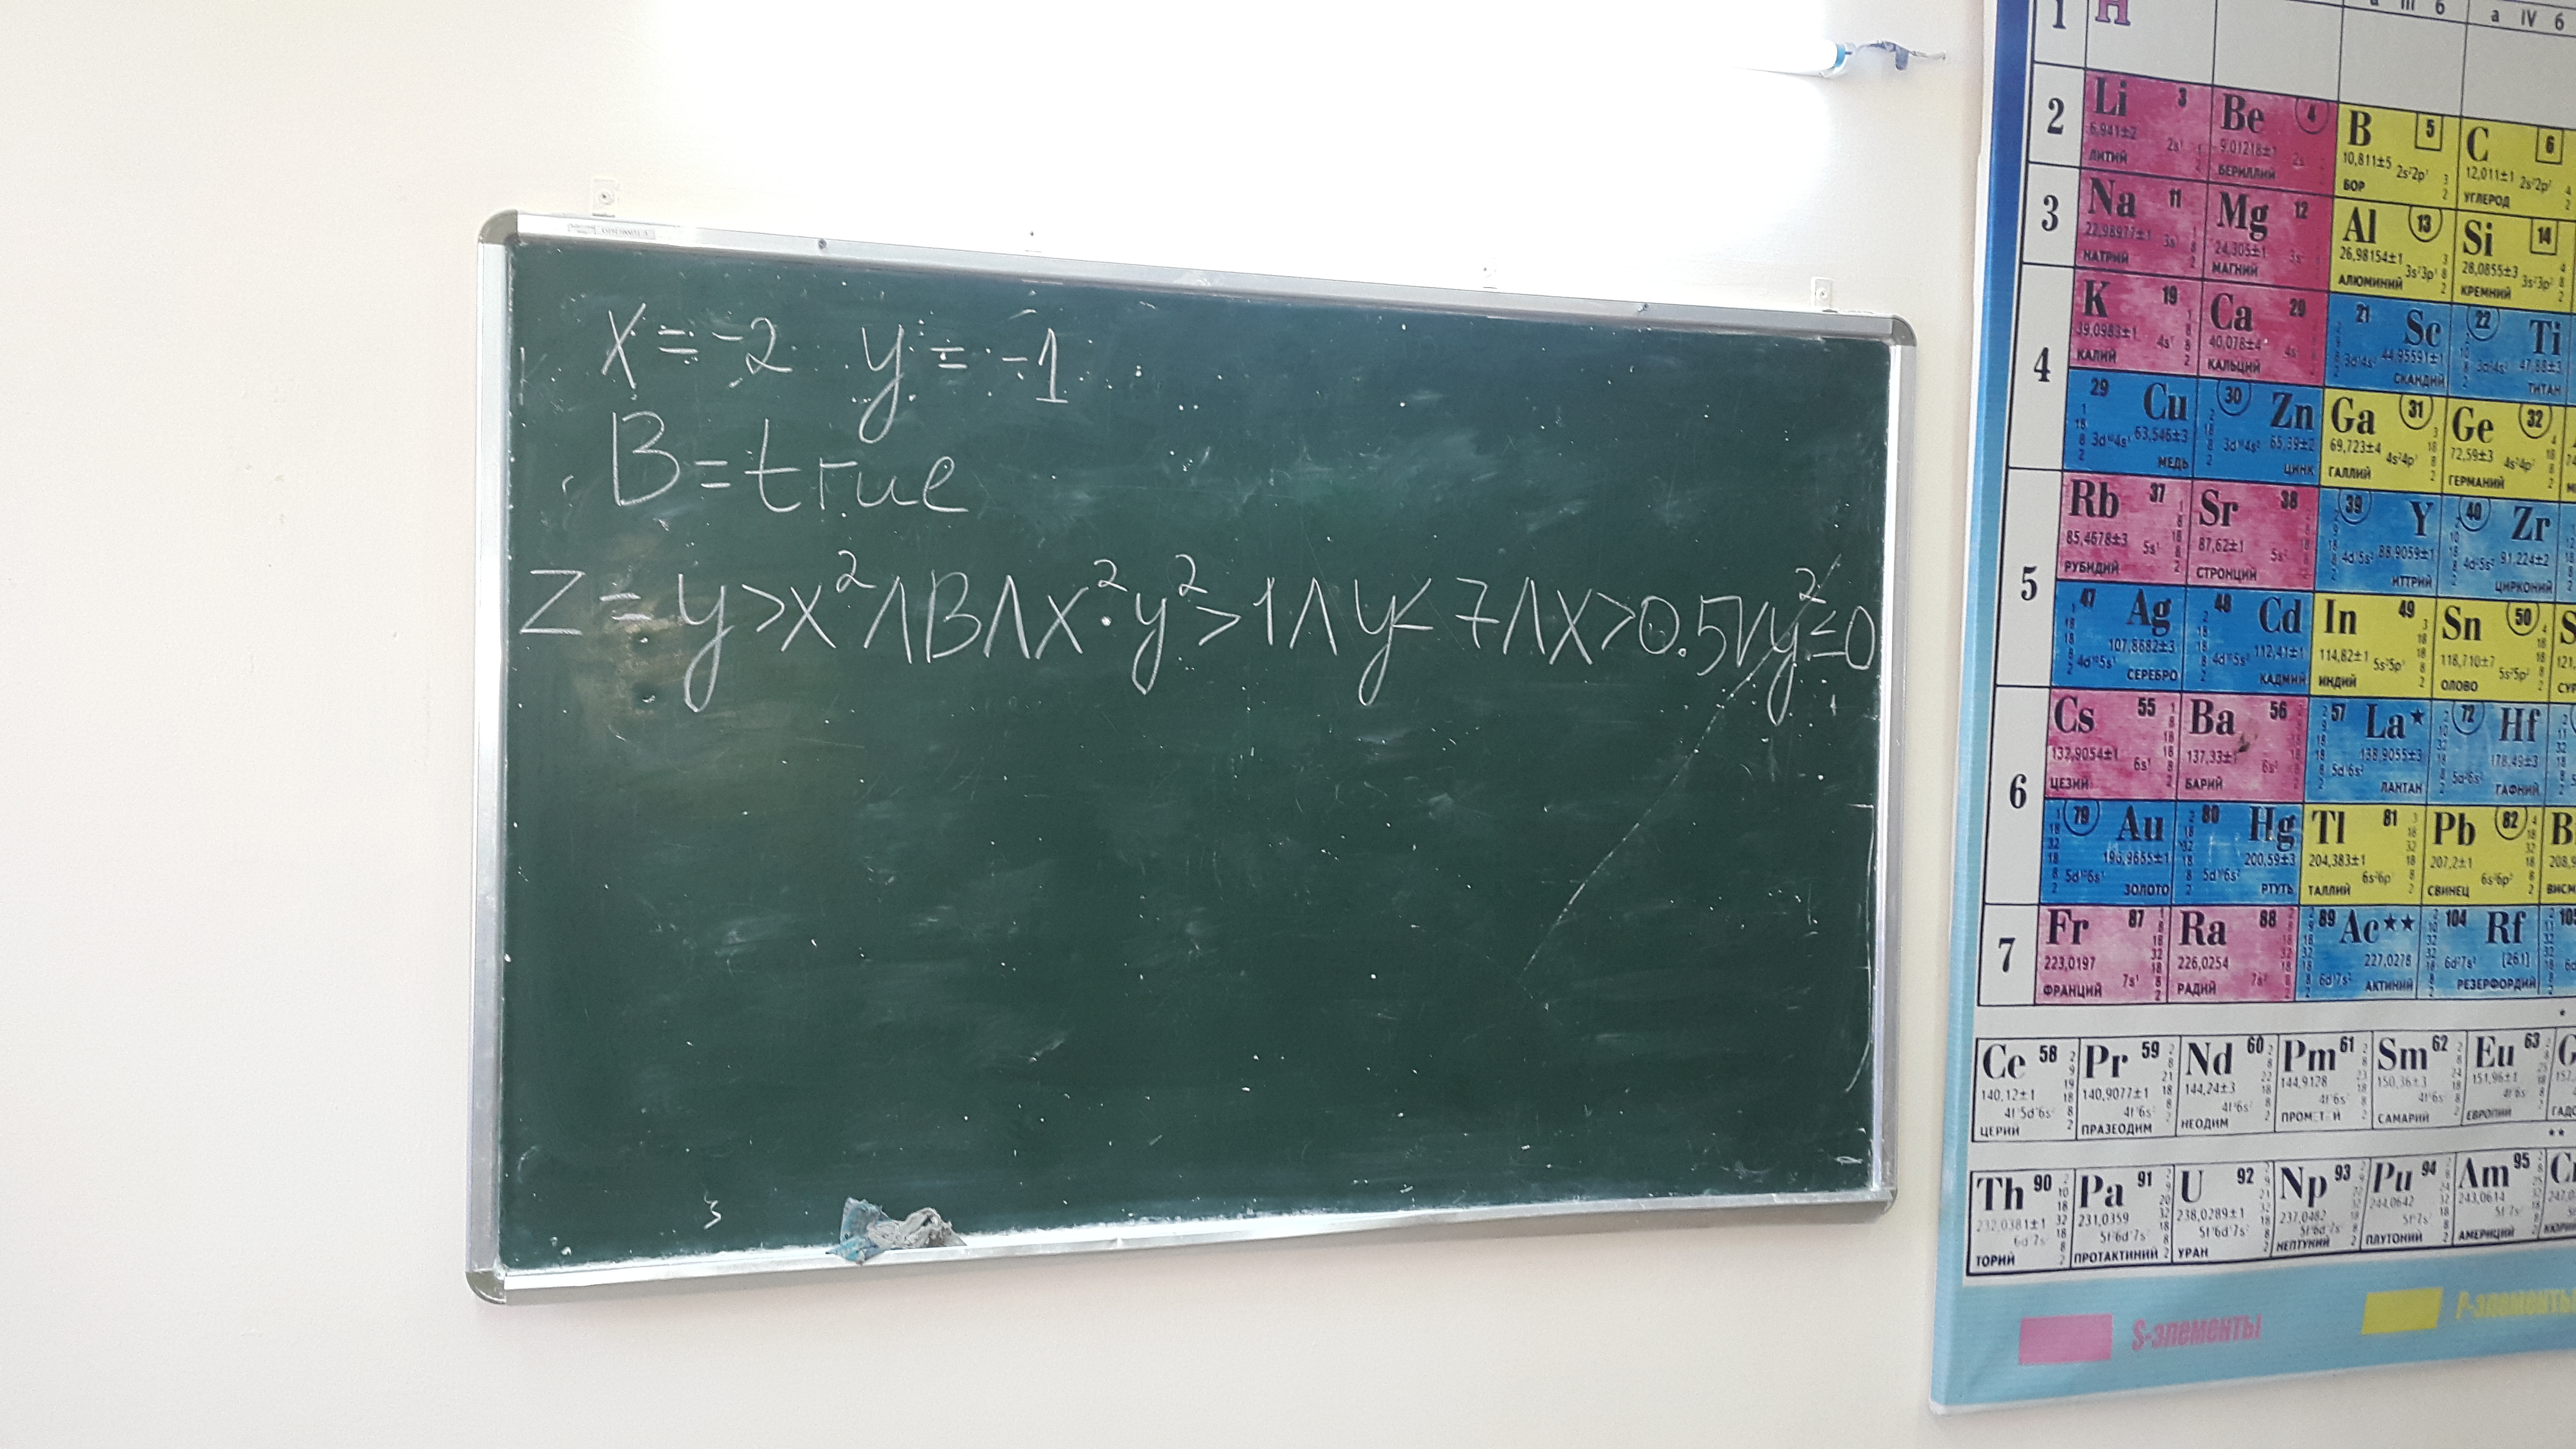 x = -2 y = -1
B = true
Z = y > x² ∧ B ∧ x² · y² > 1 ∧ y < 7 ∧ x > 0.5 ∨ y² = 0
3
1 H
а III б а IV б
2 Li 3 Be 4 B 5 C 6
6,941±2 9,01218±1 10,811±5 12,011±1
2s¹ 2s 2s²2p¹ 2s²2p²
ЛИТИЙ БЕРИЛЛИЙ БОР УГЛЕРОД
3 Na 11 Mg 12 Al 13 Si 14
22,98977±1 24,305±1 26,98154±1 28,0855±3
3s¹ 3s 3s²3p¹ 3s²3p²
НАТРИЙ МАГНИЙ АЛЮМИНИЙ КРЕМНИЙ
4 K 19 Ca 20 21 Sc 22 Ti
39,0983±1 40,078±4 44,95591±1 47,88±3
4s¹ 4s 3d¹4s² 3d²4s²
КАЛИЙ КАЛЬЦИЙ СКАНДИЙ ТИТАН
29 Cu 30 Zn Ga 31 Ge 32
63,546±3 65,39±2 69,723±4 72,59±3
3d¹⁰4s¹ 3d¹⁰4s² 4s²4p¹ 4s²4p²
МЕДЬ ЦИНК ГАЛЛИЙ ГЕРМАНИЙ
5 Rb 37 Sr 38 39 Y 40 Zr
85,4678±3 87,62±1 88,9059±1 91,224±2
5s¹ 5s² 4d¹5s² 4d²5s²
РУБИДИЙ СТРОНЦИЙ ИТТРИЙ ЦИРКОНИЙ
47 Ag 48 Cd In 49 Sn 50
107,8682±3 112,41±1 114,82±1 118,710±7
4d¹⁰5s¹ 4d¹⁰5s² 5s²5p¹ 5s²5p²
СЕРЕБРО КАДМИЙ ИНДИЙ ОЛОВО
6 Cs 55 Ba 56 57 La★ 72 Hf
132,9054±1 137,33±1 138,9055±3 178,49±3
6s¹ 6s² 5d¹6s² 5d²6s²
ЦЕЗИЙ БАРИЙ ЛАНТАН ГАФНИЙ
79 Au 80 Hg Tl 81 Pb 82
196,9665±1 200,59±3 204,383±1 207,2±1
5d¹⁰6s¹ 5d¹⁰6s² 6s²6p¹ 6s²6p²
ЗОЛОТО РТУТЬ ТАЛЛИЙ СВИНЕЦ
7 Fr 87 Ra 88 89 Ac★★ 104 Rf
223,0197 226,0254 227,0278 [261]
7s¹ 7s² 6d¹7s² 6d²7s²
ФРАНЦИЙ РАДИЙ АКТИНИЙ РЕЗЕРФОРДИЙ
Ce 58 Pr 59 Nd 60 Pm 61 Sm 62 Eu 63
140,12±1 140,9077±1 144,24±3 144,9128 150,36±3 151,96±1
ЦЕРИЙ ПРАЗЕОДИМ НЕОДИМ САМАРИЙ ЕВРОПИЙ
Th 90 Pa 91 U 92 Np 93 Pu 94 Am 95
232,0381±1 231,0359 238,0289±1 237,0482 244,0642 243,0614
ТОРИЙ ПРОТАКТИНИЙ УРАН НЕПТУНИЙ ПЛУТОНИЙ АМЕРИЦИЙ
S-элементы P-элементы